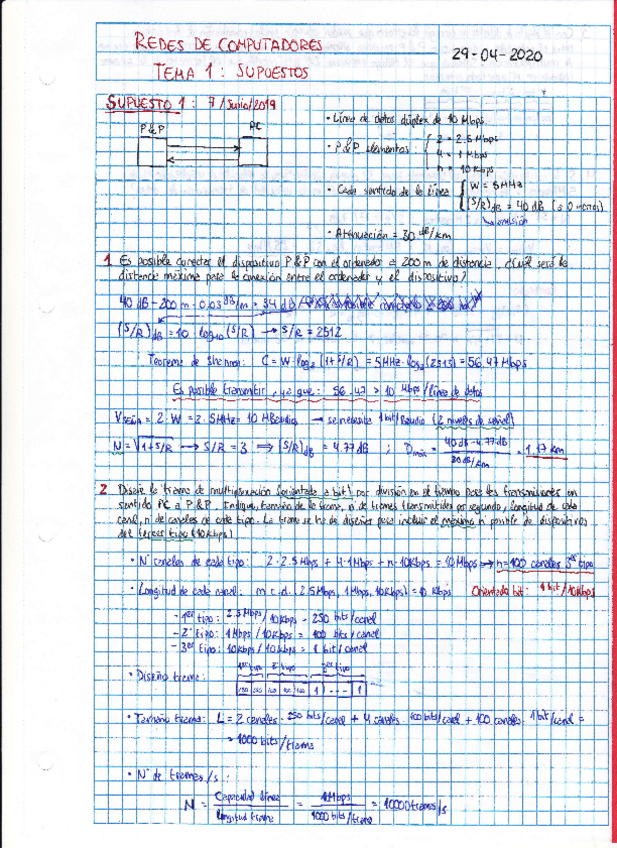 REDES DE COMPUTADORES
TEMA 1: SUPUESTOS
29-04-2020
SUPUESTO 1: 7/Junio/2019
P&P PC
• Línea de datos dúplex de 10 Mbps
• P&P elementos: 2 = 2.5 Mbps
4 = 1 Mbps
n = 10 Kbps
• Cada sentido de la línea W = 5MHz
(S/R)dB = 40 dB (a 0 metros)
emisión
• Atenuación = 30 dB/km
1 Es posible conectar el dispositivo P&P con el ordenador a 200 m de distancia. ¿Cuál será la
distancia máxima para la conexión entre el ordenador y el dispositivo?
40 dB - 200 m · 0.03 dB/m = 34 dB
(S/R)dB = 10 · log10 (S/R) → S/R = 2512
Teorema de Shannon: C = W · log2 (1+S/R) = 5MHz · log2 (2513) = 56.47 Mbps
Es posible transmitir, ya que: 56.47 > 10 Mbps/línea de datos
Vseñal = 2·W = 2·5MHz = 10 MBaudios → se necesita 1 bit/Baudio (2 niveles de señal)
N = √1+S/R → S/R = 3 ⇒ (S/R)dB = 4.77 dB ; Dmáx = 40 dB - 4.77 dB / 30 dB/km = 1.17 km
2 Diseñe la trama de multiplexación (orientada a bit) por división en el tiempo para las transmisiones en
sentido PC a P&P. Indique, tamaño de la trama, n de tramas transmitidas por segundo, longitud de cada
canal, nº de canales de cada tipo. La trama se ha de diseñar para incluir el máximo n posible de dispositivos
del tercer tipo (10Kbps)
• Nº canales de cada tipo: 2·2.5Mbps + 4·1Mbps + n·10Kbps = 10Mbps → n=100 canales 3er tipo
• Longitud de cada canal: m.c.d. (2.5Mbps, 1Mbps, 10Kbps) = 10 Kbps Orientado bit: 1 bit/10Kbps
- 1er tipo: 2.5Mbps/10Kbps = 250 bits/canal
- 2º tipo: 1Mbps/10Kbps = 100 bits/canal
- 3er tipo: 10Kbps/10Kbps = 1 bit/canal
1er tipo 2º tipo 3er tipo
• Diseño trama: 250 250 100 100 100 100 1 --- 1
• Tamaño trama: L = 2 canales · 250 bits/canal + 4 canales · 100 bits/canal + 100 canales · 1 bit/canal =
= 1000 bits/trama
• Nº de tramas/s:
N = Capacidad línea / Longitud trama = 10Mbps / 1000 bits/trama = 10000 tramas/s